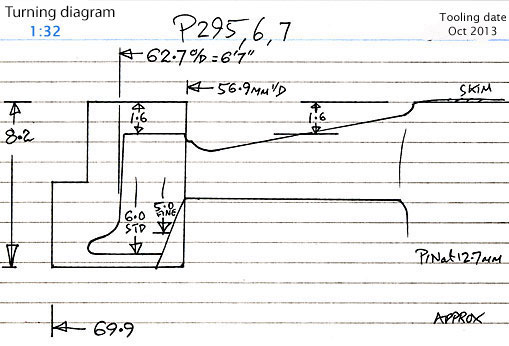 Turning diagram
1:32
P295,6,7
Tooling date
Oct 2013
62.7 O/D = 6'7"
56.9MM I/D
SKIM
1.6
1.6
8.2
6.0
STD
5.0
FINE
P/N at 12.7MM
69.9
APPROX